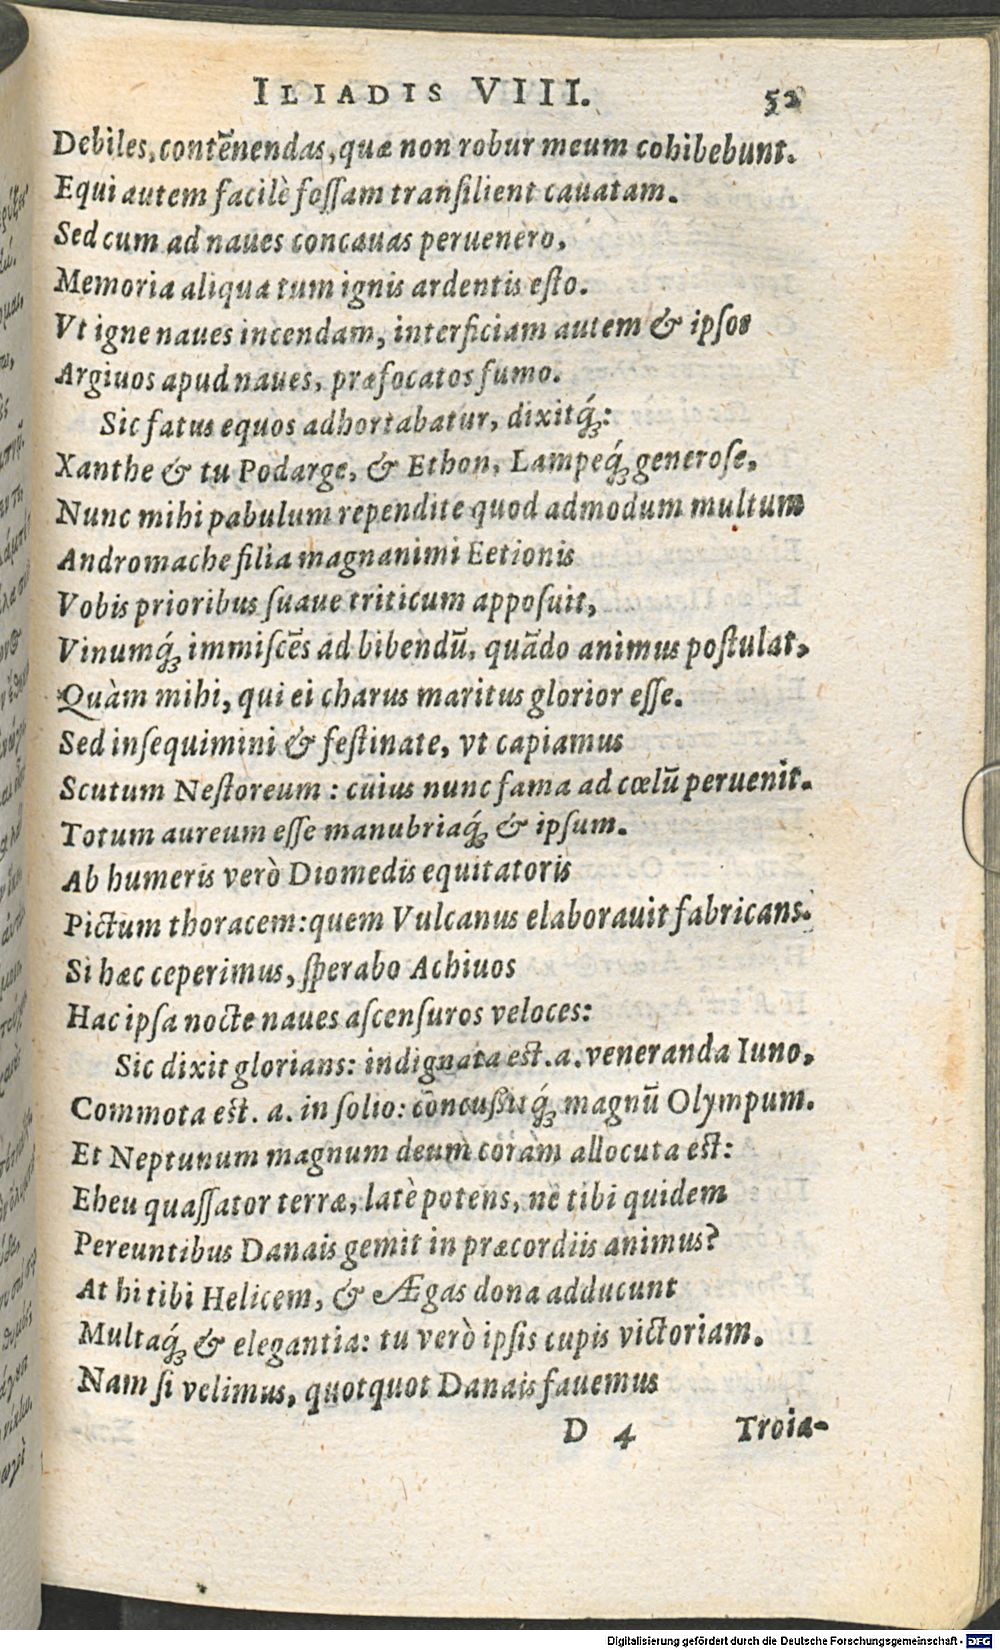 ILIADIS VIII. 52
Debiles, contẽnendas, quæ non robur meum cohibebunt.
Equi autem facilè foſſam tranſilient cauatam.
Sed cum ad naues concauas peruenero,
Memoria aliqua tum ignis ardentis eſto.
Vt igne naues incendam, interficiam autem & ipſos
Argiuos apud naues, præfocatos fumo.
Sic fatus equos adhortabatur, dixitq́;:
Xanthe & tu Podarge, & Ethon, Lampeq́; generoſe,
Nunc mihi pabulum rependite quod admodum multum
Andromache filia magnanimi Eetionis
Vobis prioribus ſuaue triticum appoſuit,
Vinumq́; immiſcẽs ad bibendũ, quãdo animus poſtulat,
Quàm mihi, qui ei charus maritus glorior eſſe.
Sed inſequimini & feſtinate, vt capiamus
Scutum Neſtoreum: cuius nunc fama ad cœlũ peruenit.
Totum aureum eſſe manubriaq́; & ipſum.
Ab humeris verò Diomedis equitatoris
Pictum thoracem: quem Vulcanus elaborauit fabricans.
Si hæc ceperimus, ſperabo Achiuos
Hac ipſa nocte naues aſcenſuros veloces:
Sic dixit glorians: indignata eſt .a. veneranda Iuno,
Commota eſt .a. in ſolio: cõncuſsitq́; magnũ Olympum.
Et Neptunum magnum deum coràm allocuta eſt:
Eheu quaſſator terræ, latè potens, ne tibi quidem
Pereuntibus Danais gemit in præcordiis animus?
At hi tibi Helicem, & Ægas dona adducunt
Multaq́; & elegantia: tu verò ipſis cupis victoriam.
Nam ſi velimus, quotquot Danais fauemus
D 4 Troia-
Digitalisierung gefördert durch die Deutsche Forschungsgemeinschaft - DFG